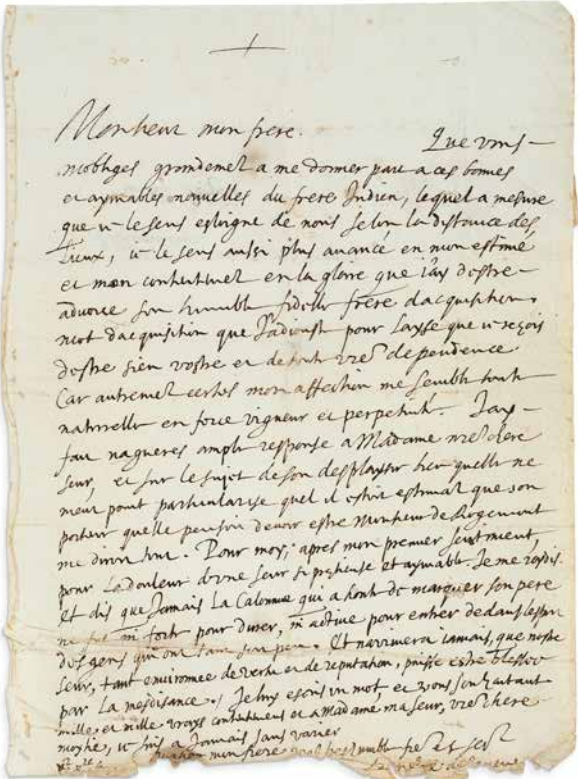 Monsieur mon frere.
Que vous
mobliges grandemet a me donner part a ces bonnes
et aymables nouvelles du frere Indien, lequel a mesure
que ie le sens esloigne de nous selon la distance des
lieux, ie le sens aussi plus avancé en mon estime
et mon contentemet en la gloire que j'ay destre
advoué son humble fidelle frere dacquisition.
mot dacquisition que J'adiouste pour layse que ie reçois
destre sien vostre et de toute vre dependence.
Car autremet certes mon affection me semble toute
naturelle en force vigneur et perpetuité. J'ay
fait nagueres ample response a Madame nre chere
seur, et sur le sujet de son desplaysir bien quelle ne
meut point particularisé quel il estoit estimat que son
porteur quelle pensoit devoir estre Monsieur de Rogemont
me diroit tout. Pour moy, apres mon premier sentiment,
pour la douleur dune seur si pretieuse et aymable. Je me
Et dis que Jamais La Calomnie qui a honte de marquer son pere
ne fut ni forte pour durer, ni active pour entrer dedans lesprit
des gens qui ont tant soit peu. Et narrivera iamais, que nostre
seur, tant environnee de vertu et de reputation, puisse estre blessee
par La mesdisance. Je luy escris un mot et vous souhaitant
mille et mille vrays contentemens et a Madame ma seur, vre chere
moytié, ie suis a Jamais sans varier
Monsieur mon frere humble